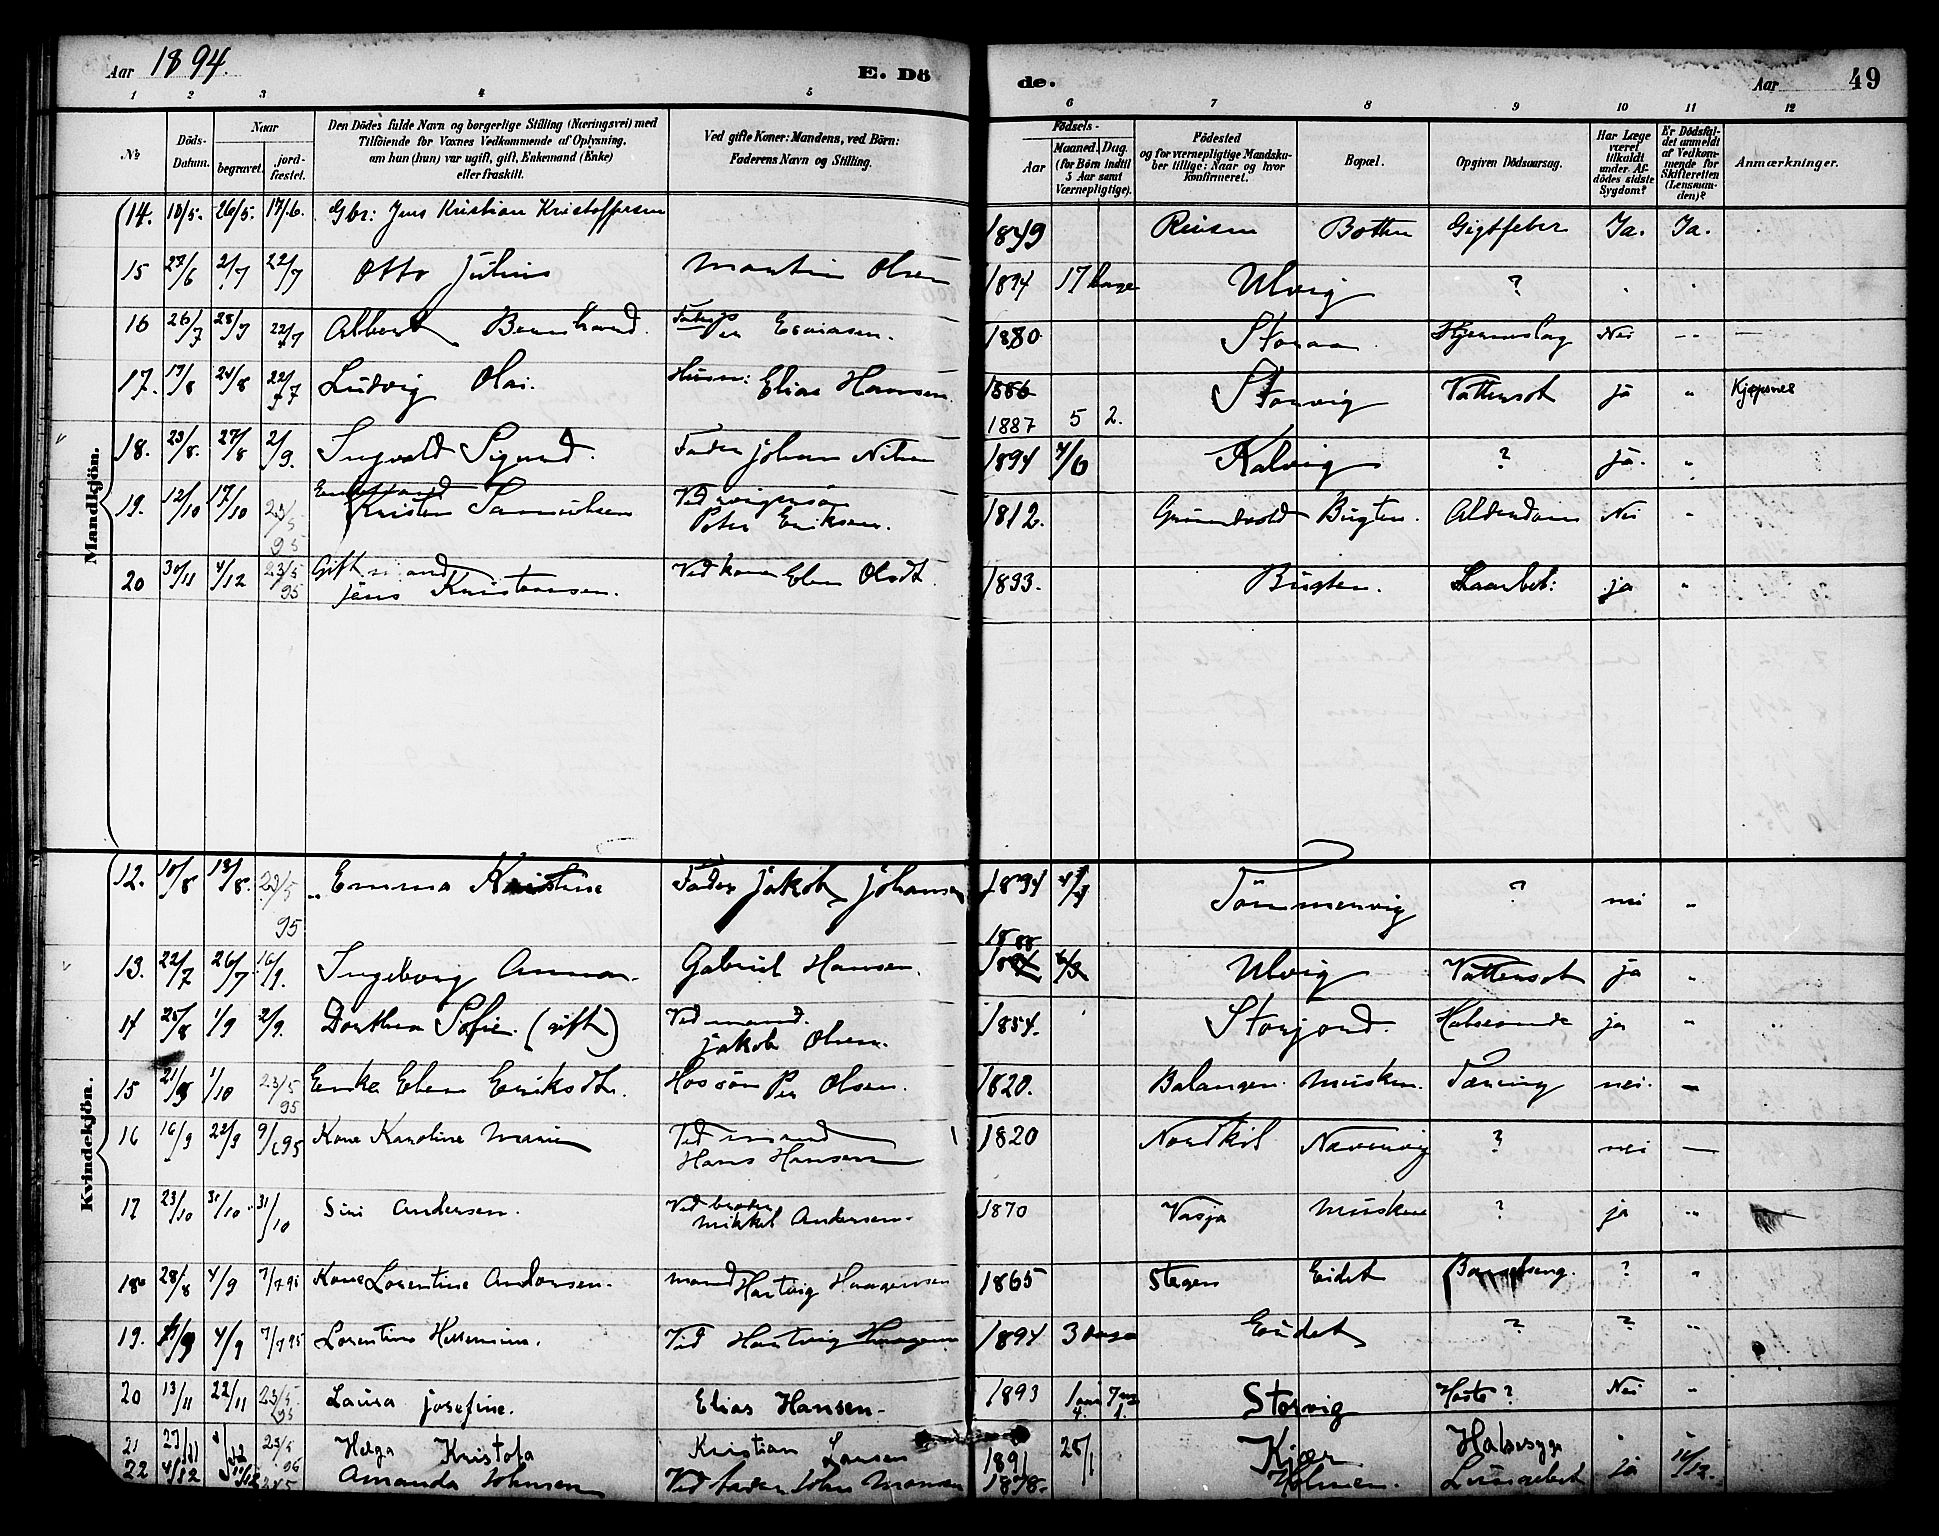 Aar 1894. E. Dö
de. Aar 49
1 2 3 4 5
6 7 8 9 10 11 12
No Döds-Datum. Naar begravet. jord-fæstet. Den Dödes fulde Navn og borgerlige Stilling (Næringsvei) med Tilföiende for Voxnes Vedkommende af Oplysning, om hun (hun) var ugift, gift, Enkemand (Enke) eller fraskilt. Ved gifte Koner: Mandens, ved Börn: Faderens Navn og Stilling.
Födsels- Aar Maaned. Dag. (for Börn indtil 5 Aar samt Værnepligtige). Födested og for værnepligtige Mandska-ber tillige: Naar og hvor konfirmeret. Bopæl. Opgiven Dödsaarsag. Har Læge været tilkaldt under Af-dödes sidste Sygdom? Er Dödsfal-det anmeldt af Vedkom-mende for Skifteretten (Lensman-den)? Anmærkninger.
Mandkjön.
14. 18/5. 26/5. 17/6. Gbr: Jens Kristian Kristoffersen 1849 Botten Gigtfeber Ja. Ja.
15 23/6 2/7 22/7 Otto Julius Martin Olsen 1894 17 Dage Ulvig ?
16 26/7 28/7 22/7 Albert Bernhard. Fader Per Esaiasen. 1880 Storaa Hjerneslag Nei
17. 13/8 24/8 22/7 Ludvig Olai. Husm: Elias Hansen. 1886 1887 5 2. Storvig Vattersot ja " Kjøpsnes
18. 23/8. 27/8 2/9. Ingvald Sigurd. Fader Johan Nilsen 1894 4/6 Kalvig ? ja. "
19. 12/10 17/10 23/5 95 Enkemand Kristen Samuelsen Ved svigersøn Peter Eriksen. 1812. Bugten. Alderdom Nei "
20 30/11 4/12 23/5 95 Gift mand Jens Kristensen. Ved kone Elen Olsdt. 1893. Bugten. ja "
Kvindekjön.
12. 10/8 13/8. 23/5 95 Emma Kristine Fader Jakob Johansen 1894 Tømmervig ? nei "
13. 22/7 26/7 16/9. Ingeborg Anna. Gabriel Hansen. 1888 Ulvig Vattersot ja "
14 25/8 1/9 2/9. Dorthea Sofie. (gift) Ved mand. Jakob Olsen. 1854. Storjord. ja "
15 21/9 1/10 23/5 95 Enke Elen Eriksdt. Hos søn Per Olsen. 1820. Balangen. Musken. Tæring nei. –
16 16/9 22/9 Kone Karoline Marie Ved mand Hans Hansen 1820 Nordkil Nævervig ? nei —
17 23/10 31/10. 31/10 Siri Andersen. Ved broder Mikkel Andersen. 1870 Vasja Musken ? ja "
18 28/8 4/9 7/7 95 Kone Lorentine Andersen. mand Hartvig Haagensen 1865 Stegen Eidet Barselseng. ? "
19. 4/9 7/7 95 Lorentine Hermine. Ved Hartvig Haagensen 1894 3 Dage Eidet ? ? "
20 13/11 22/11 23/5 95 Laura Josefine. Elias Hansen. 1893 Storvig Hoste? Nei "
21 Helga Kristofa Kristian Larsen 1891 Kjær Halssyge
22 4/12 Amanda Johnsen Ved fader John Monsen 1878. Holmen. ja